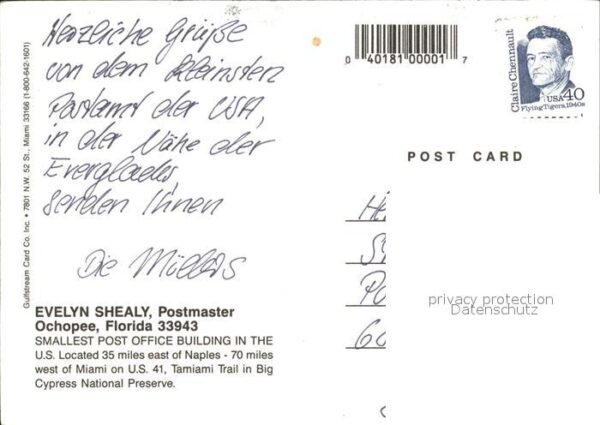 Herzliche Grüße
von dem kleinsten
Postamt der USA,
in der Nähe der
Everglades,
senden Ihnen
Die Müllers
EVELYN SHEALY, Postmaster
Ochopee, Florida 33943
SMALLEST POST OFFICE BUILDING IN THE
U.S. Located 35 miles east of Naples - 70 miles
west of Miami on U.S. 41, Tamiami Trail in Big
Cypress National Preserve.
Gulfstream Card Co. Inc. • 7801 N.W. 52 St., Miami 33166 (1-800-642-1601)
0 40181 00001 7
Claire Chennault
USA 40
Flying Tigers, 1940s
POST CARD
privacy protection
Datenschutz